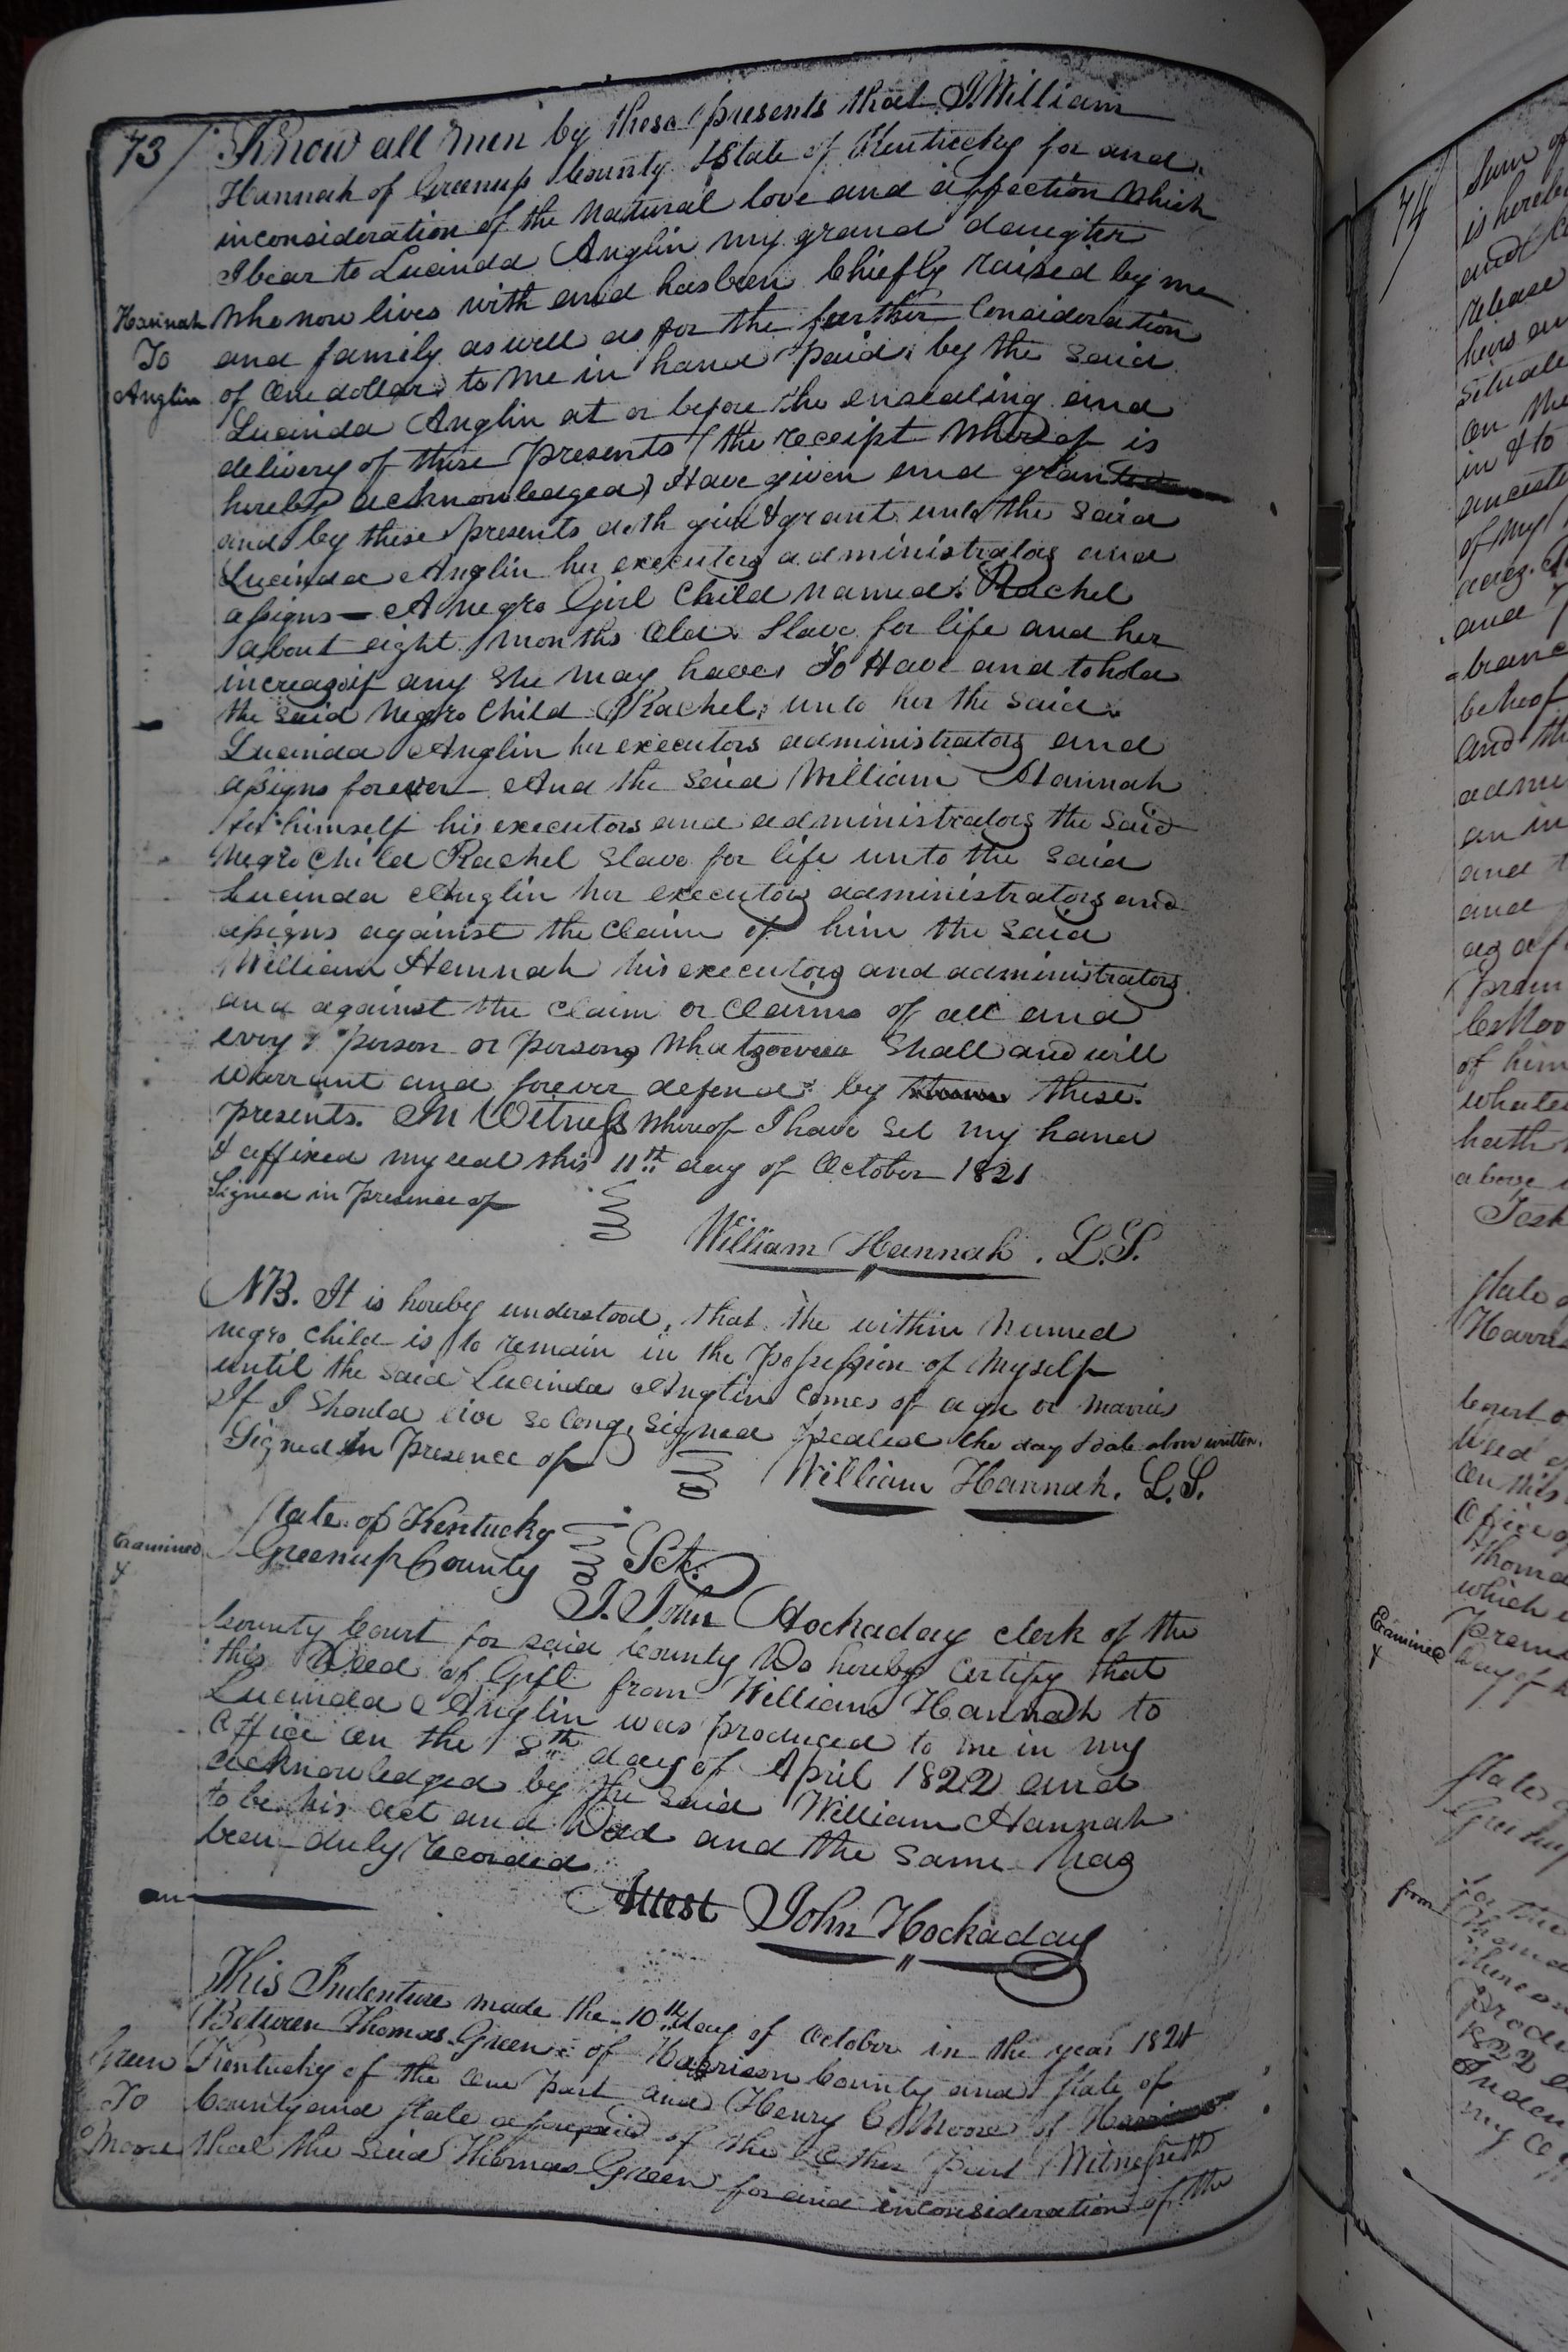 73/
Know all men by these presents that I William
Hannah of Greenup County & State of Kentucky for and
inconsideration of the natural love and affection which
I bear to Lucinda Anglin my grand daugter
who now lives with and has been Chiefly raised by me
and family as well as for the further Consideration
of One dollar to me in hand paid by the said
Lucinda Anglin at or before the ensealing and
delivery of these presents (the receipt whereof is
hereby acknowledged) Have given and granted
and by these presents doth give & grant unto the said
Lucinda Anglin her executors administrators and
assigns — A negro Girl Child named Rachel
about eight months Old Slave for life and her
increas if any she may have To Have and to hold
the said Negro Child Rachel unto her the said
Lucinda Anglin her executors administrators and
assigns forever And the said William Hannah
for himself his executors and administrators the said
Negro Child Rachel Slave for life unto the said
Lucinda Anglin her executors administrators and
assigns against the Claim of him the said
William Hannah his executors and administrators
and against the Claim or Claims of all and
every person or persons whatsoever Shall and will
warrant and forever defend by these
presents. In Witness whereof I have set my hand
& affixed my seal this 11th day of October 1821
Signed in presence of
William Hannah. L.S.
Hannah
To
Anglin
NB. It is hereby understood, that the within named
negro child is to remain in the possession of myself
until the said Lucinda Anglin comes of age or marries
If I should live so long, signed & sealed the day & date above written.
Signed In Presence of
William Hannah. L.S.
State of Kentucky
Greenup County Sct.
Examined
I. John Hockaday clerk of the
County Court for said County Do hereby Certify that
this Deed of Gift from William Hannah to
Lucinda Anglin was produced to me in my
Office on the 8th day of April 1822 and
acknowledged by the said William Hannah
to be his act and Deed and the same has
been duly recorded
Attest John Hockaday
This Indenture made the 10th day of October in the year 1821
Between Thomas Green of Harrison County and State of
Kentucky of the One part and Henry C Moore of Harrison
County and State aforesaid of the Other part Witnesseth
that the said Thomas Green for and inconsideration of the
Green
To
Moore
74/
Sum of
is hereby
release
heirs an
situate
on the
in & to
of my
and
behoof
and the
admi
an in
and
and
of him
whatev
hath
above
State o
Harri
Court o
Deed
on this
Office of
Thoma
which
Examined
Day of
State
from
1822
Inden
my